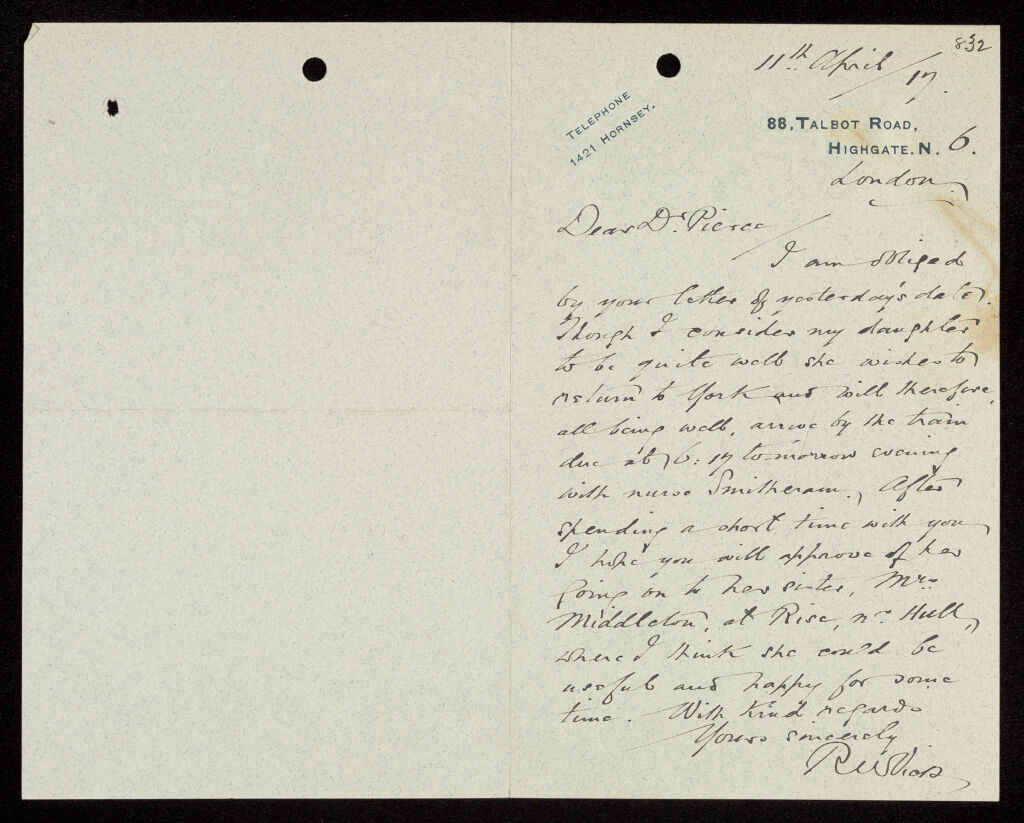 832
11th. April / 17.
TELEPHONE
1421 HORNSEY.
88, TALBOT ROAD,
HIGHGATE. N. 6.
London.
Dear Dr. Pierce /
I am obliged
by your letter of yesterday's date.
Though I consider my daughter
to be quite well she wishes to
return to York and will therefore,
all being well, arrive by the train
due at 6:17 to-morrow evening
with nurse Smitheram. After
spending a short time with you
I hope you will approve of her
going on to her sister, Mrs
Middleton, at Rise, nr. Hull,
where I think she could be
useful and happy for some
time. With kind regards
Yours sincerely